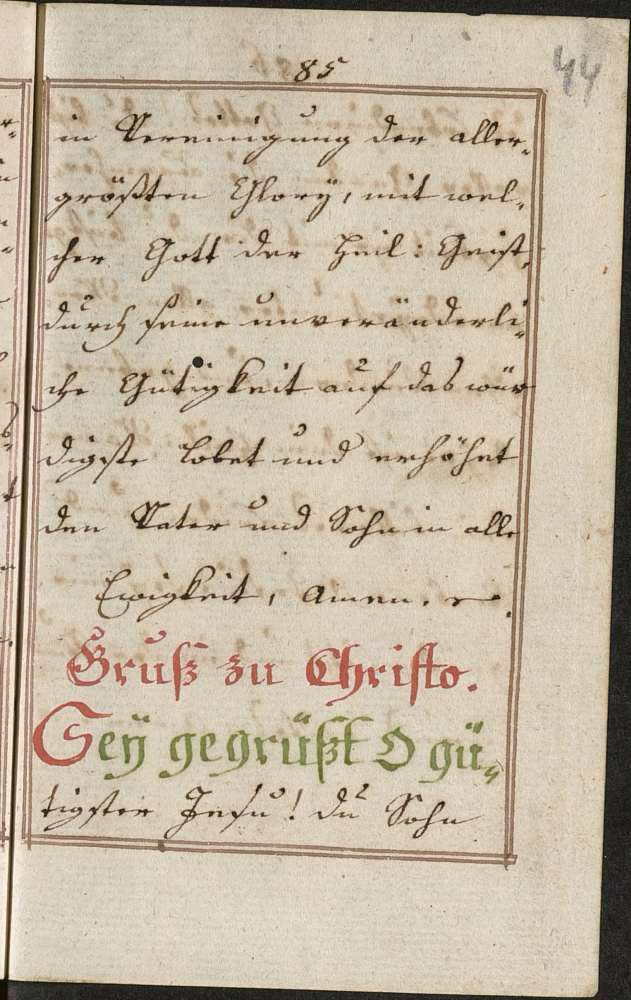 85
44
in Vereinigung der aller-
größten Glory, mit wel-
cher Gott der Heil: Geist,
durch seine unveränderli-
che Gütigkeit auf das wür
digste lobet und erhöhet
den Vater und Sohn in alle
Ewigkeit, Amen.
Gruß zu Christo.
Seÿ gegrüßt O gü-
tigster Jesu! du Sohn